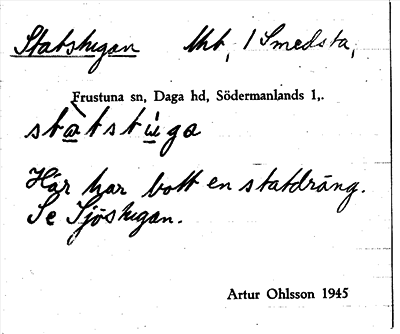 Statstugan Uht, 1 Smedsta,
Frustuna sn, Daga hd, Södermanlands l,.
stàtstùga
Här har bott en statdräng.
Se Sjöstugan.
Artur Ohlsson 1945